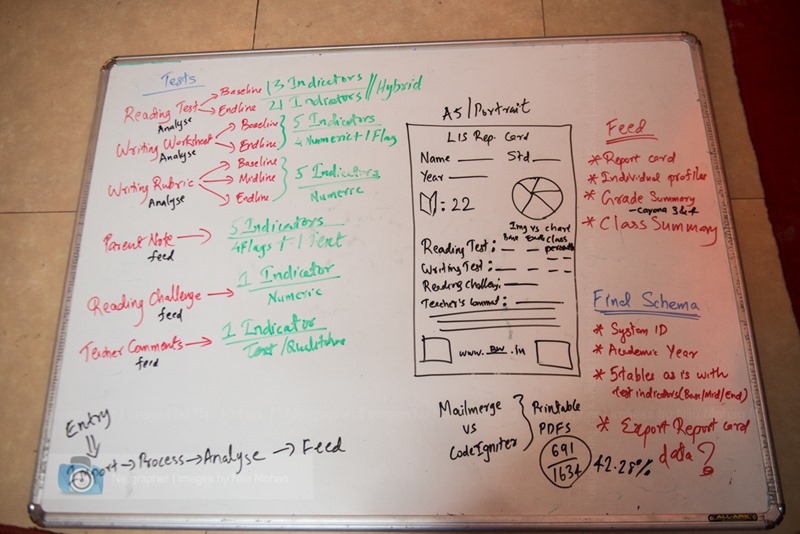 Tests
Reading Test
Analyse
Baseline
13 Indicators
Endline
21 Indicators
Hybrid
Writing Worksheet
Analyse
Baseline
Endline
5 Indicators
4 Numeric + 1 Flag
Writing Rubric
Analyse
Baseline
Midline
Endline
5 Indicators
Numeric
Parent Note
feed
5 Indicators
4 Flags + 1 Text
Reading Challenge
feed
1 Indicator
Numeric
Teacher Comments
feed
1 Indicator
Text /
Entry
Import → Process → Analyse → Feed
A5 / Portrait
LIS Rep. Card
Name Std
Year
: 22
Img vs chart
Base Endln class
Reading Test:
Writing Test:
Reading Challenge:
Teacher's Comment:
www. .in
Mailmerge
vs
CodeIgniter
Printable
PDFS
691
1634
42.28%
Feed
* Report card
* Individual profiles
* Grade Summary
* Class Summary
Final Schema
* System ID
* Academic Year
* 5 tables as is with
test indicators (Base/Mid/End)
* Export Report card
data?